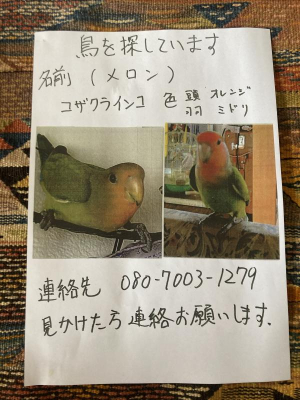 鳥を探しています
名前 (メロン)
コザクラインコ 色 頭 オレンジ
羽 ミドリ
連絡先 080-7003-1279
見かけた方 連絡お願いします.